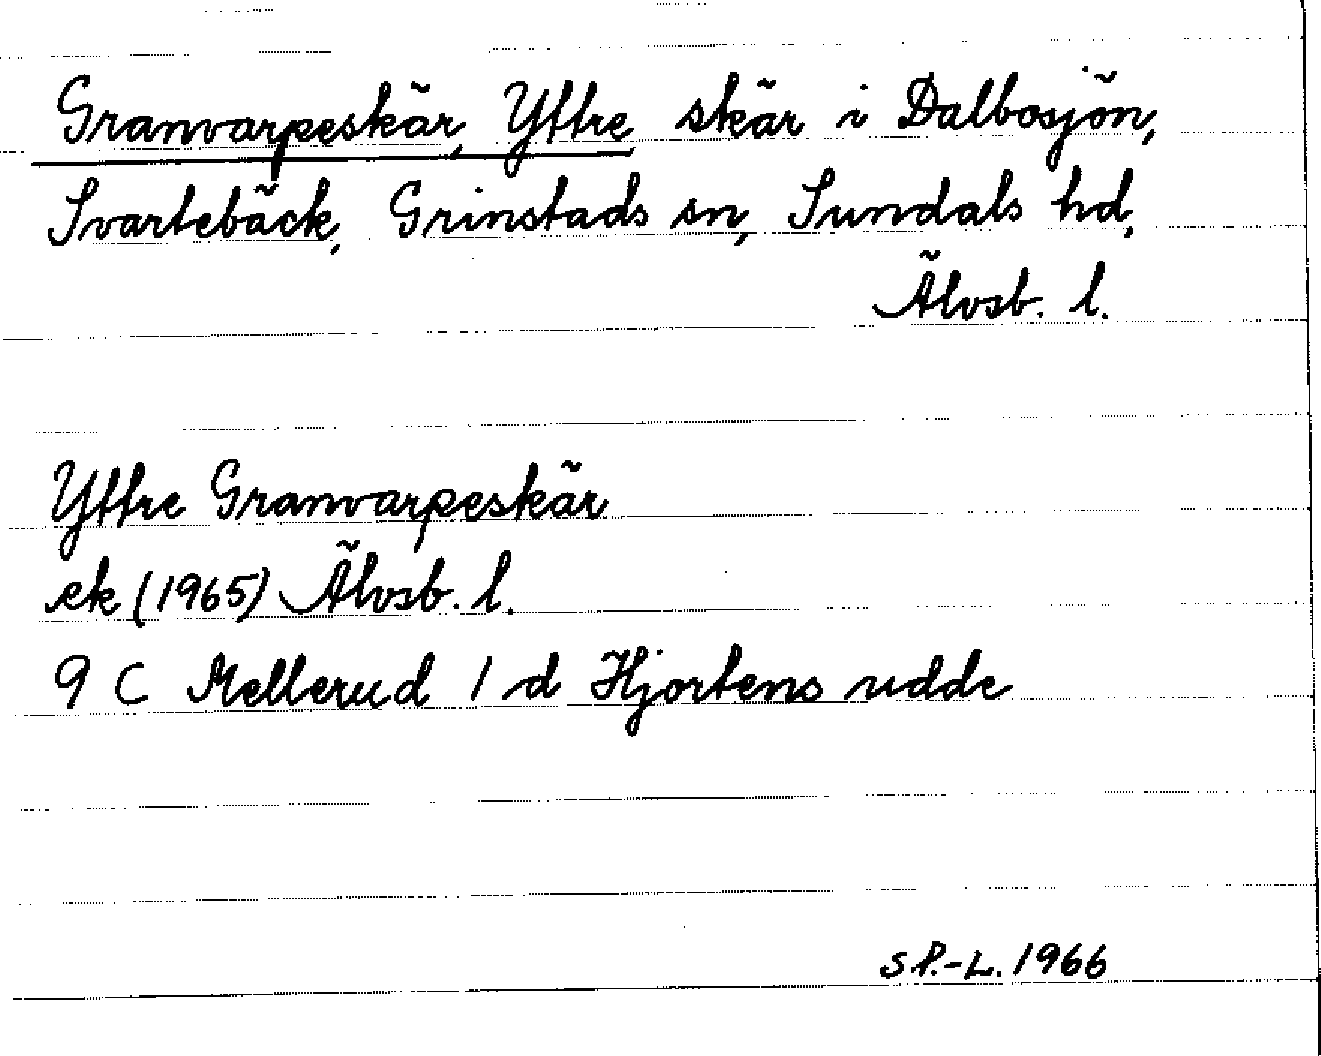 Granvarpeskär, Yttre skär i Dalbosjön,
Svartebäck, Grinstads sn, Sundals hd,
Älvsb. l.
Yttre Granvarpeskär
ek (1965) Älvsb. l.
9 C Mellerud 1 d Hjortens udde
S.P.-L. 1966